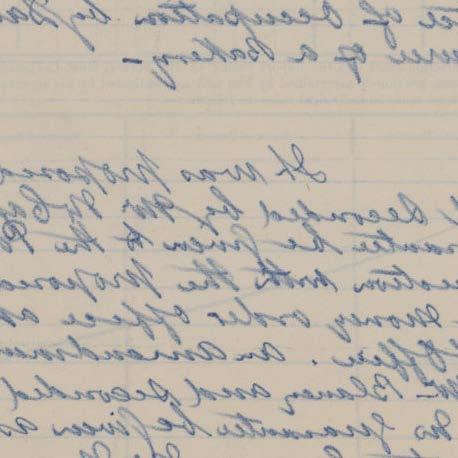 ce of Occupation by Da
ture of a Bakery -
It was proposed
Seconded by Mr McCa
rantee be given to the P
nection with the proposed
Money order office at
Office. An amendment
Mr Blaney and seconded
no guarantee be given as